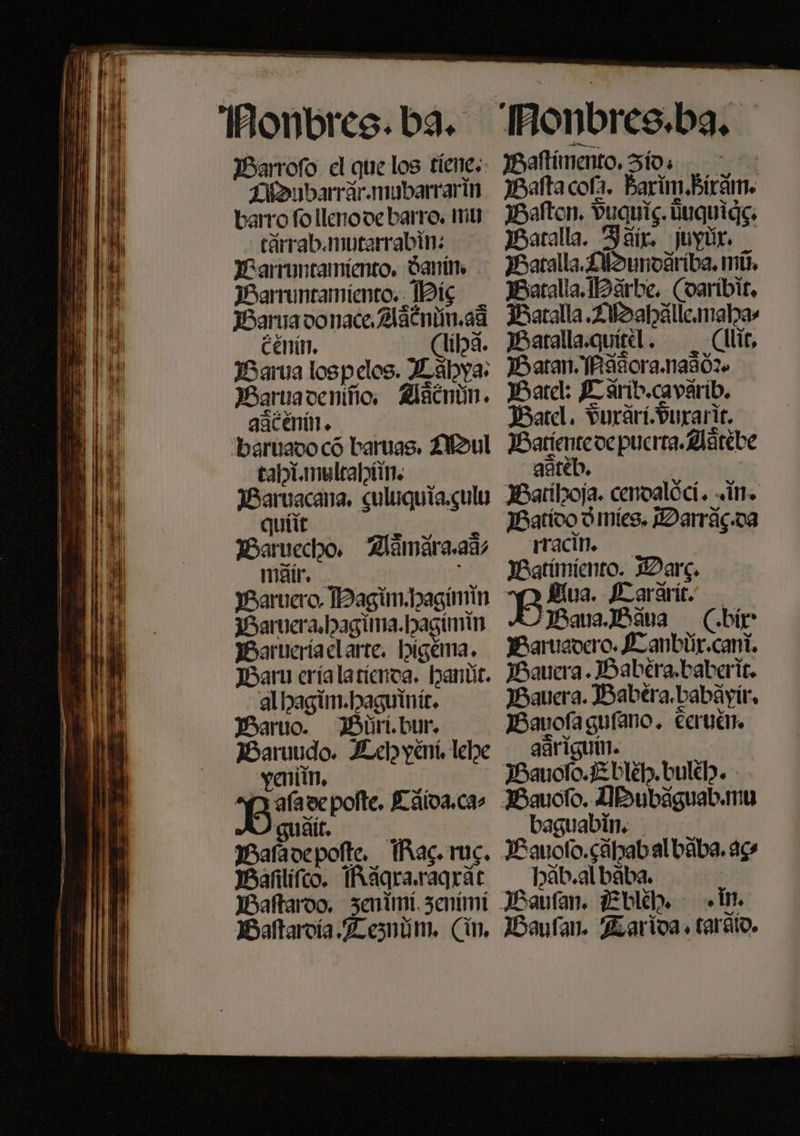 Nonbres. ba.
Barroso el que los tiene.
Mubarrár.mubarrarìn
barro so lleno de barro. mu
tárrab.mutarrabìn.
Barruntamiento. danìn.
Barruntamiento. Hiç
Barua do nace. Aáčnún.aâ
čěnín. (lihâ.
Barua los pelos. Láhya.
Barua de niño. Aáčnún.
aâčěnín.
baruado có baruas. Mul
tahì.multahíìn.
Baruacana. çuluquìa.çulu
quiít
Baruecho. Aâmára.aâ=
máir.
Baruero. Hagìm.hagimìn
Baruera.hagìma.hagimìn
Barueria el arte. higéma.
Baru ería la tienda. hanút.
al hagìm.haguìnit.
Baruo. Búri.bur.
Baruudo. Lehyéni. lehe
yeniìn.
Basa de poste. Cáida.ca=
guáit.
Basa de poste. Raç. ruç.
Basilisco. Ráqra.raqrát
Bastardo. zenìmí. zenimí
Bastardia. Teznúm. (in.
Nonbres.ba.
Bastimento. zíd.
Basta cosa. harìm.hirám.
Baston. ôuquìç. ûuquiáç.
Batalla. Jáix. juyúx.
Batalla. Mundáriba. mú.
Batalla. Hárbe. (daribìt.
Batalla. Mahálle.maha=
Batalla.quitěl. (llit.
Batan. Nááôra.naâôr.
Batel: Cárib.cavárib.
Batel. ôurárí.ôurarìt.
Batiente de puerta. Aátěbe
aâtěb.
Batihoja. cendalôcí. .in.
Batido ô mies. Darráç.da
rracìn.
Batimiento. Darç.
Baua. Cararit.
Baua. Báua (.bir
Baruadero. Canbúr.cani.
Bauera. Baběra.baberit.
Bauera. Baběra.babáyir.
Bauosa gusano. čeruěn.
aâriguìn.
Bauoso. Ebléh.buléh.
Bauoso. Mubáguab.mu
baguabìn.
Bauoso.çáhab al bába. aç=
háb.al bába.
Bausan. Ebléh. .in.
Bausan. Tarida. taráid.